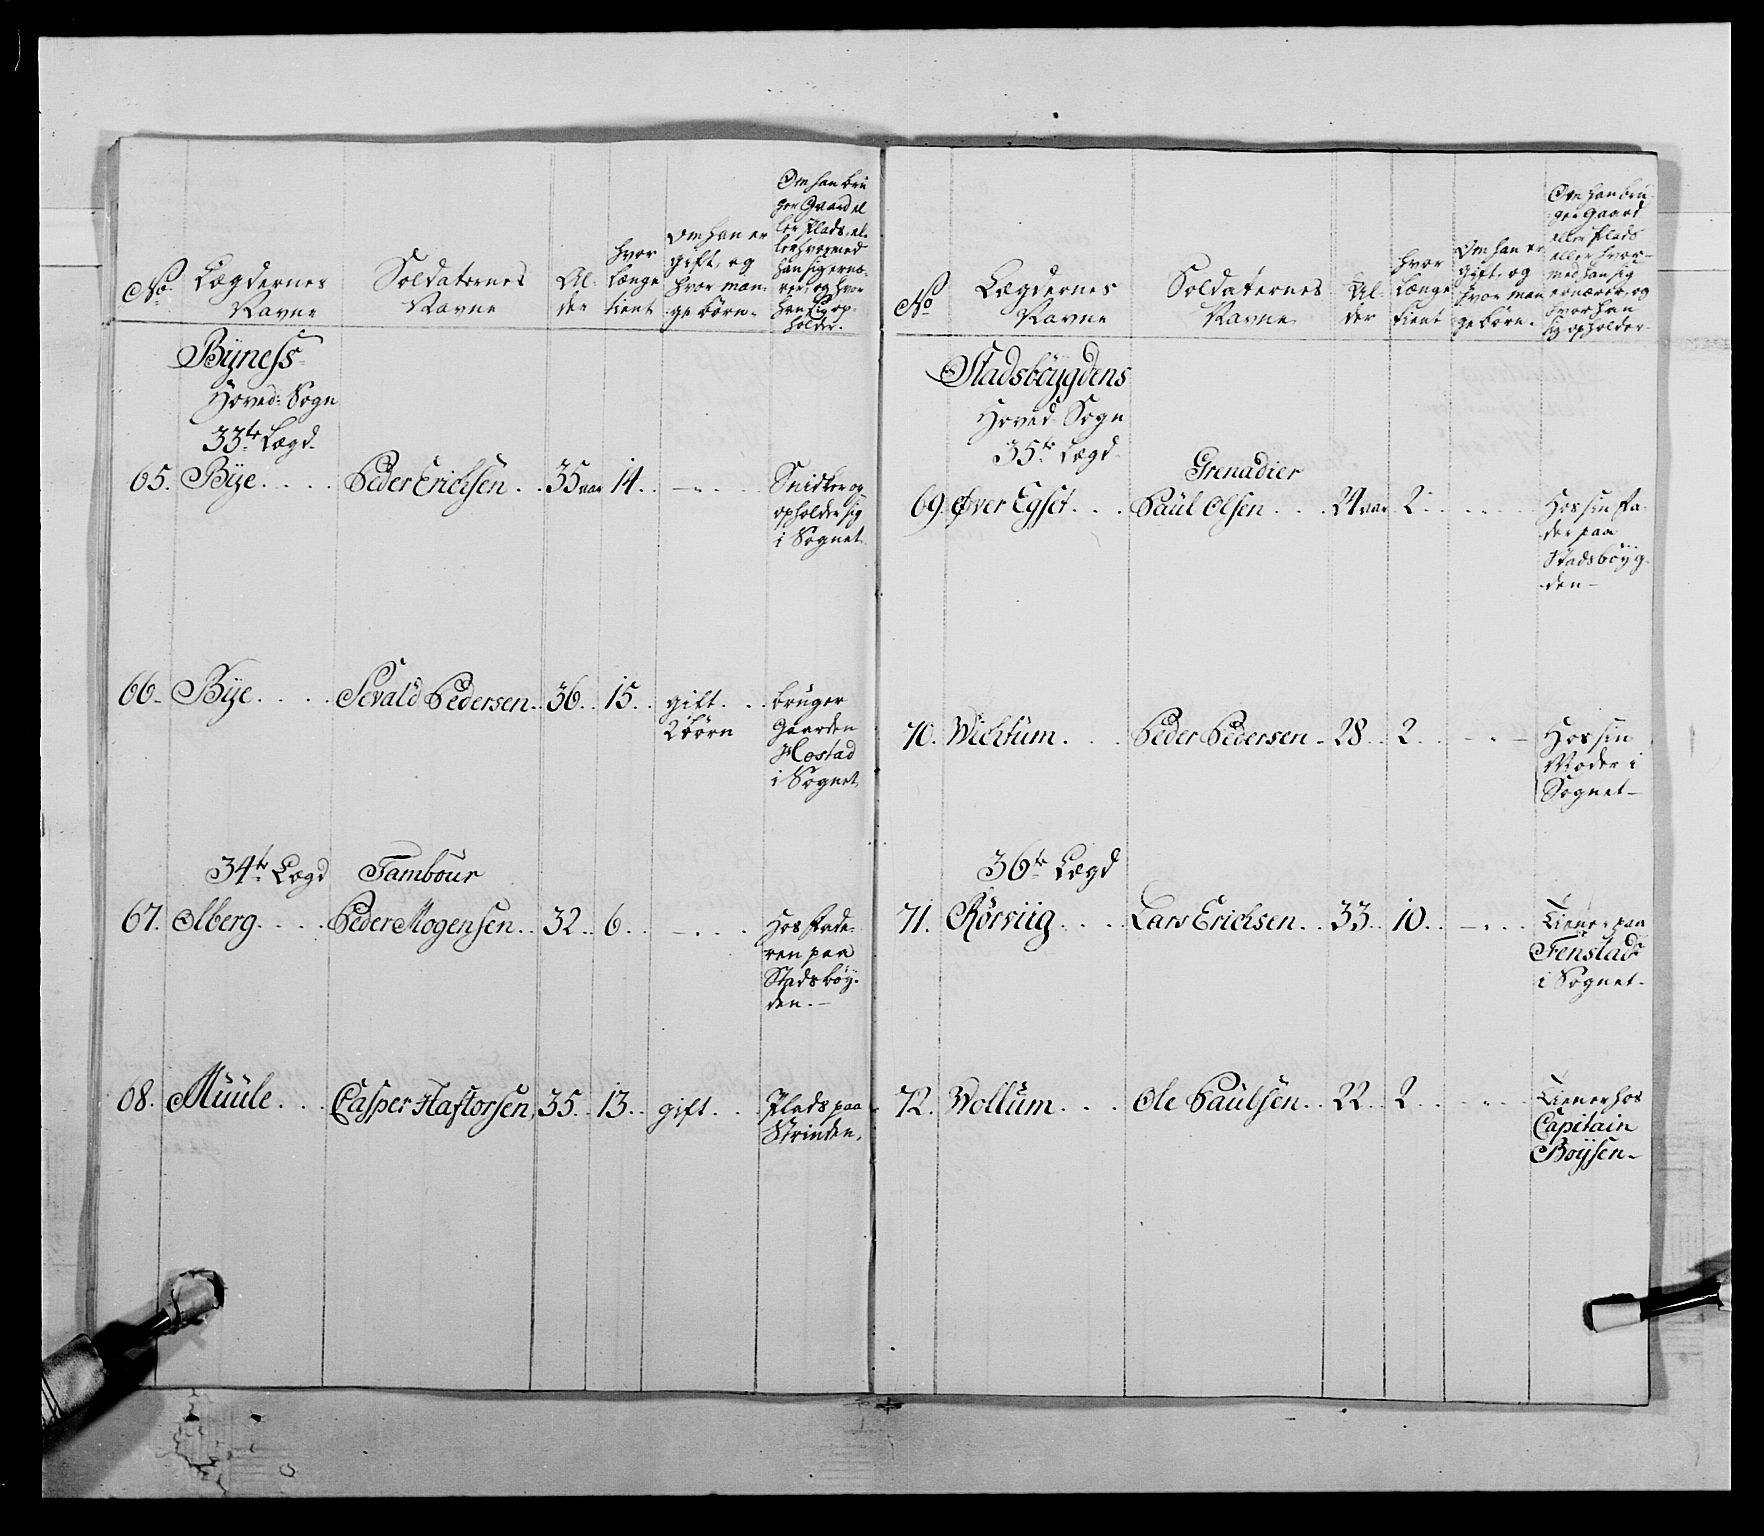 No
Lægdernes
Navne
Soldaternes
Navne
Al-
der
hvor
længe
tient
Om han er
gift, og
hvor man-
ge börn.
Om han bru
ger Gaard el
ler Plads, el-
ler hvormed
han sig ernæ-
rer, og hvor
han sig op-
holder.
Byness
Hoved-Sogn
33te Lægd
65. Bÿe.... Peder Erichsen.. 35 aar 14. - . . . Snidker og
opholder sig
i Sognet
66. Bÿe.... Sevald Pedersen.. 36.. 15.. gift... bruger
2 börn Gaarden
Hostad
i Sognet
34te Lægd Tambour
67. Olberg.... Peder Mogensen.. 32.. 6.. - . . . Hos Fade-
ren paa
Stadsböÿ-
den.-
68. Müüle... Casper Haftorsen, 35.. 13.. gift... Plads paa
Strinden.
No
Lægdernes
Navne
Soldaternes
Navne
Al-
der
hvor
længe
tient
Om han er
gift, og
hvor man
ge börn.
Om han bru-
ger Gaard
eller Plads
eller hvor-
med han sig
ernærer, og
hvor han
sig opholder
Stadsböÿgdens
Hoved-Sogn
35te Lægd
Grenadier
69. Øver Egset... Paül Olsen... 24 aar 2. . . . . Hos sin Fa-
der paa
Stadsböÿg-
den-
70. Wichtüm.... Peder Pedersen.. 28.. 2.. - . - Hos sin
Moder i
Sognet-
36te Lægd
71. Rörviig.... Lars Erichsen.. 33.. 10.. - . . . Tiener paa
Fenstad
i Sognet.
72. Wollüm... Ole Paülsen.. 22.. 2.. . . . . Tiener hos
Capitain
Boÿsen-